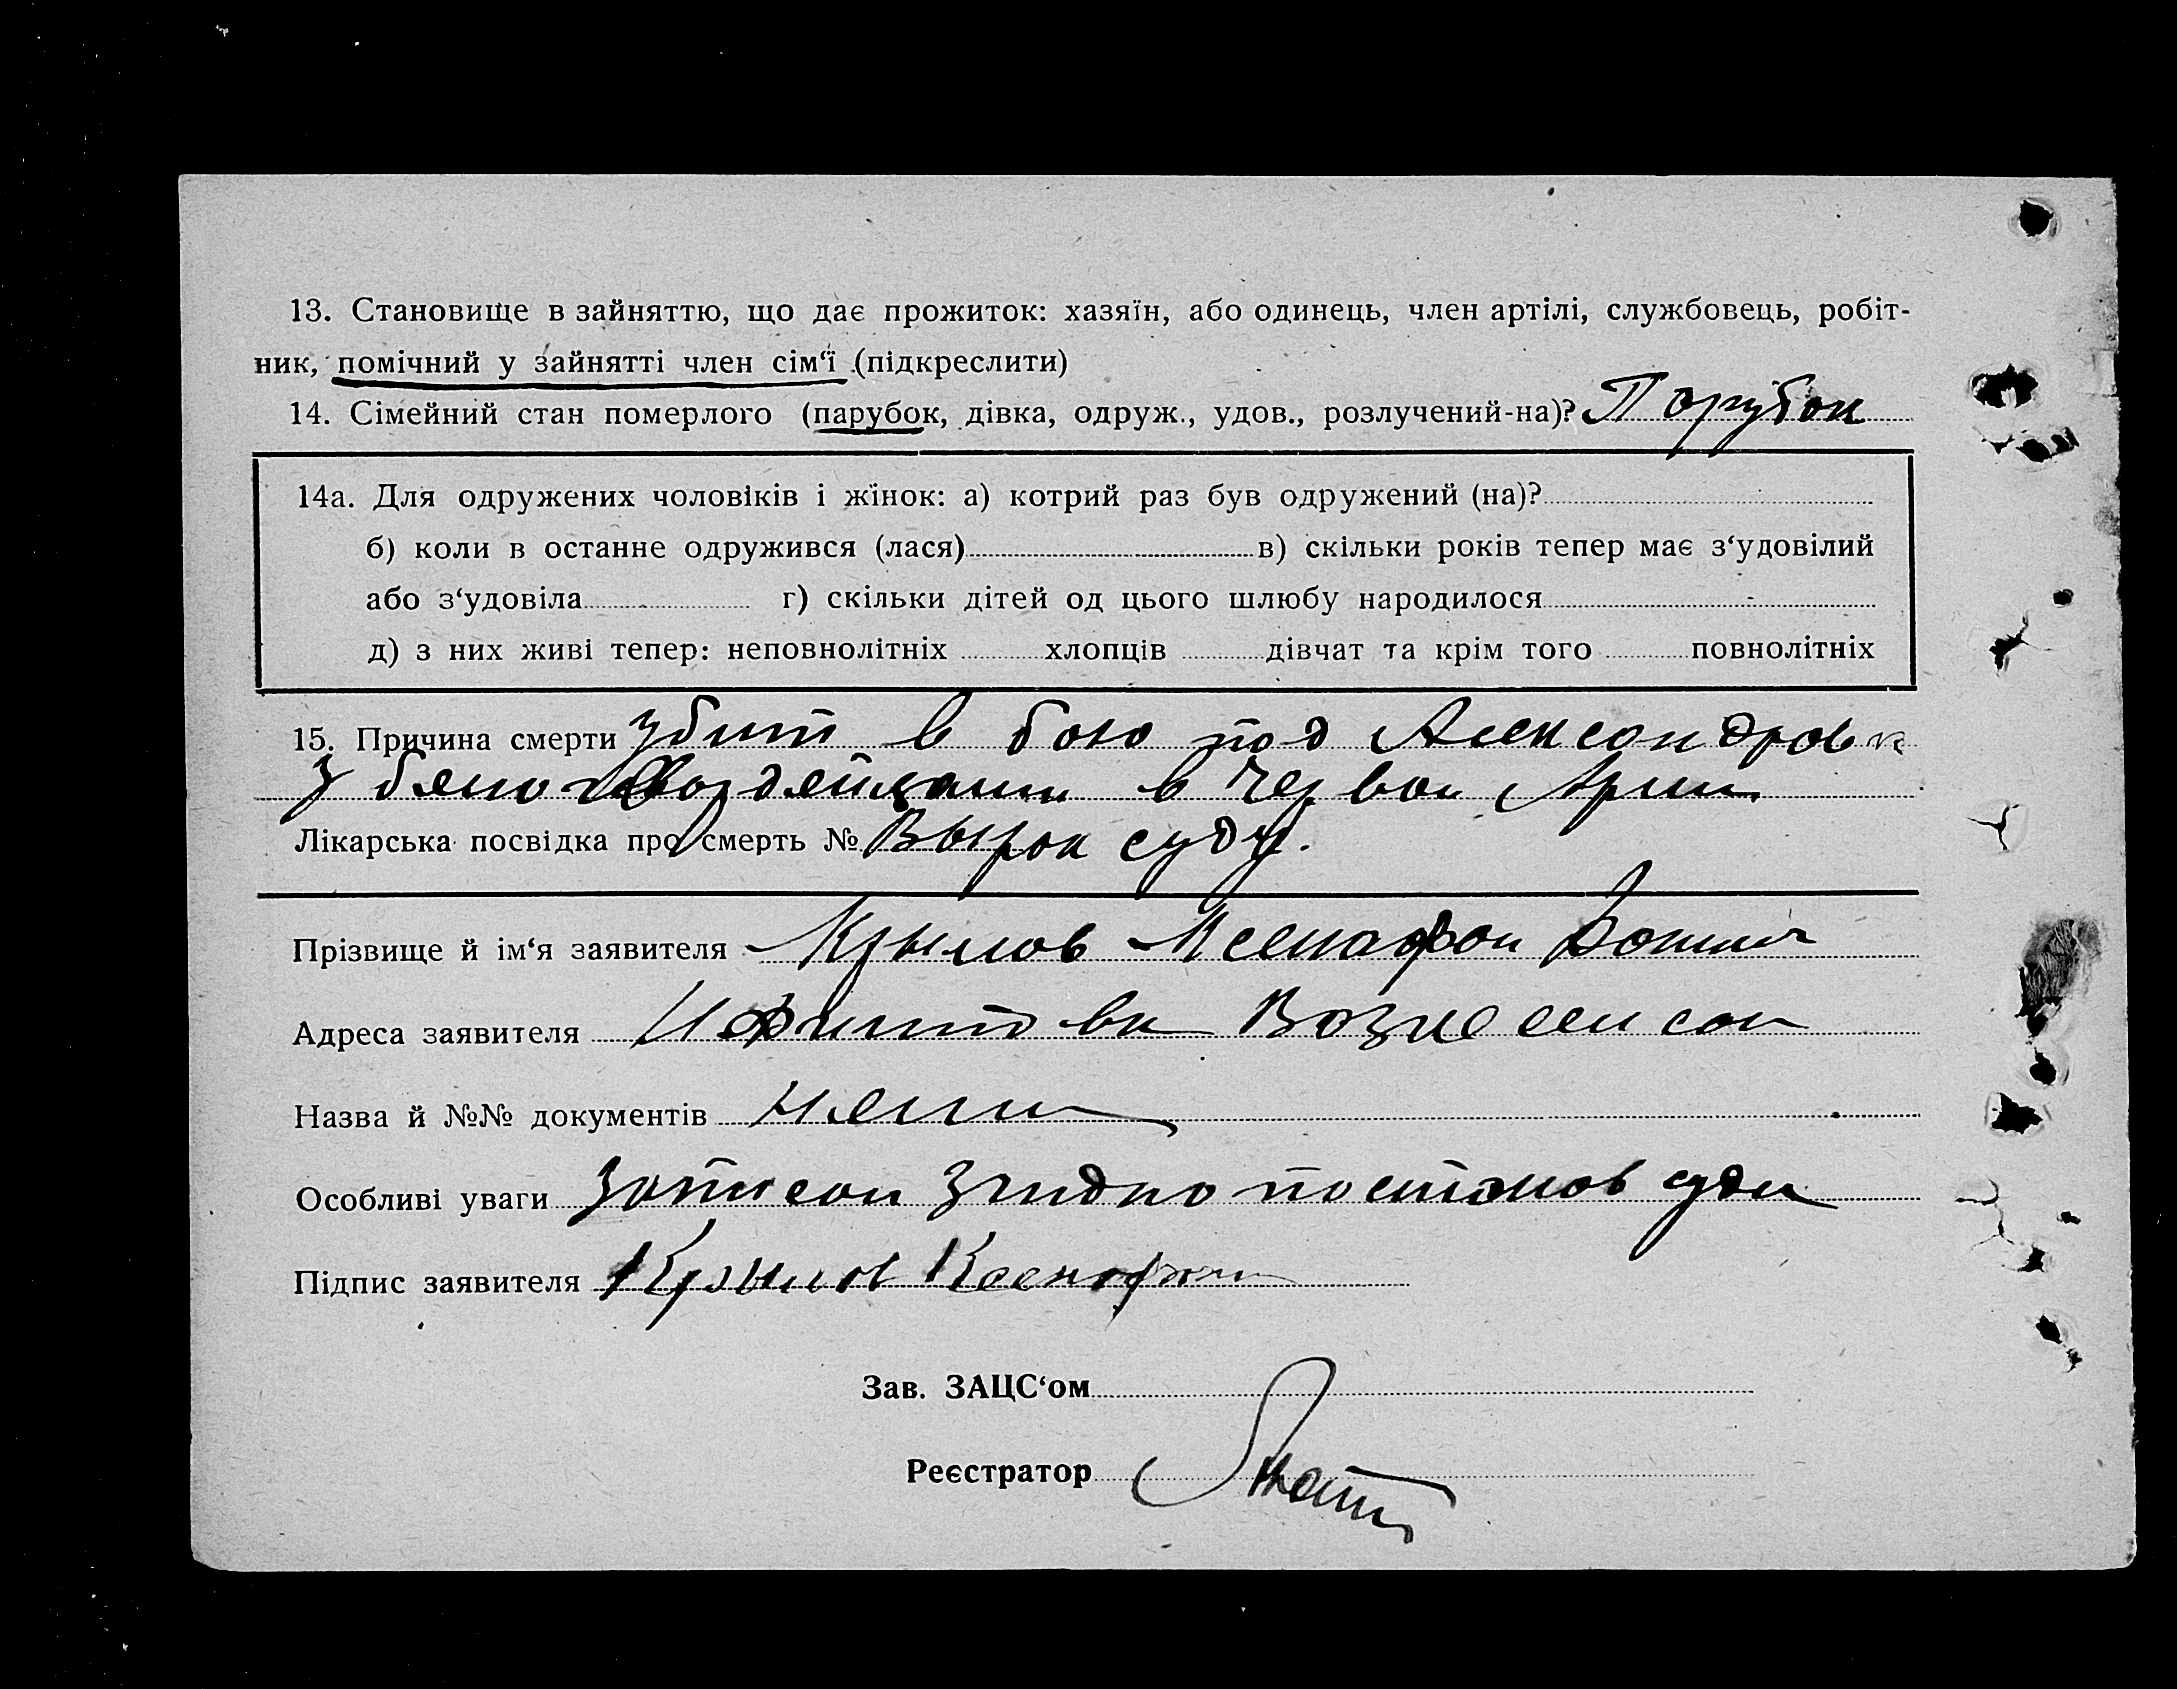 13. Становище в зайняттю, що дає прожиток: хазяїн, або одинець, член артілі, службовець, робіт-
ник, помічний у зайнятті член сім‘ї (підкреслити)
14. Сімейний стан померлого (парубок, дівка, одруж., удов., розлучений-на)? Порубок
14а. Для одружених чоловіків і жінок: а) котрий раз був одружений (на)?
б) коли в останне одружився (лася) в) скільки років тепер має з‘удовілий
або з‘удовіла г) скільки дітей од цього шлюбу народилося
д) з них живі тепер: неповнолітніх хлопців дівчат та крім того повнолітніх
15. Причина смерти убит в бою под Александровк
з в Червон Арми
Лікарська посвідка про смерть № Вырок суду.
Прізвище й ім‘я заявителя Крылов Ксенафон
Адреса заявителя Вознесенсон
Назва й №№ документів
Особливі уваги Записан згидно постанов суда
Підпис заявителя Крылов Ксенофон
Зав. ЗАЦС‘ом
Реєстратор